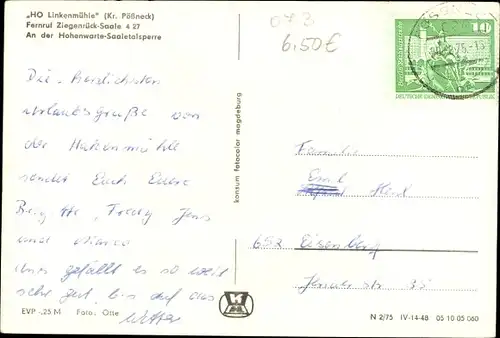 „HO Linkenmühle" (Kr. Pößneck)
Fernruf Ziegenrück-Saale 4 27
An der Hohenwarte-Saaletalsperre
073
6.50€
10
DEUTSCHE DEMOKRATISCHE REPUBLIK
Die herzlichsten
Urlaubsgrüße von
der
sendet Euch Eure
Freddy Jens
und
uns gefällt es so weit
sehr gut, bis auf das
Wetter
kontum fotocolor magdeburg
Familie
Emil
652 Eisenberg
Jenaer Str 35
EVP -,25 M Foto: Otte
N 2/75 IV-14-48 05 10 05 060